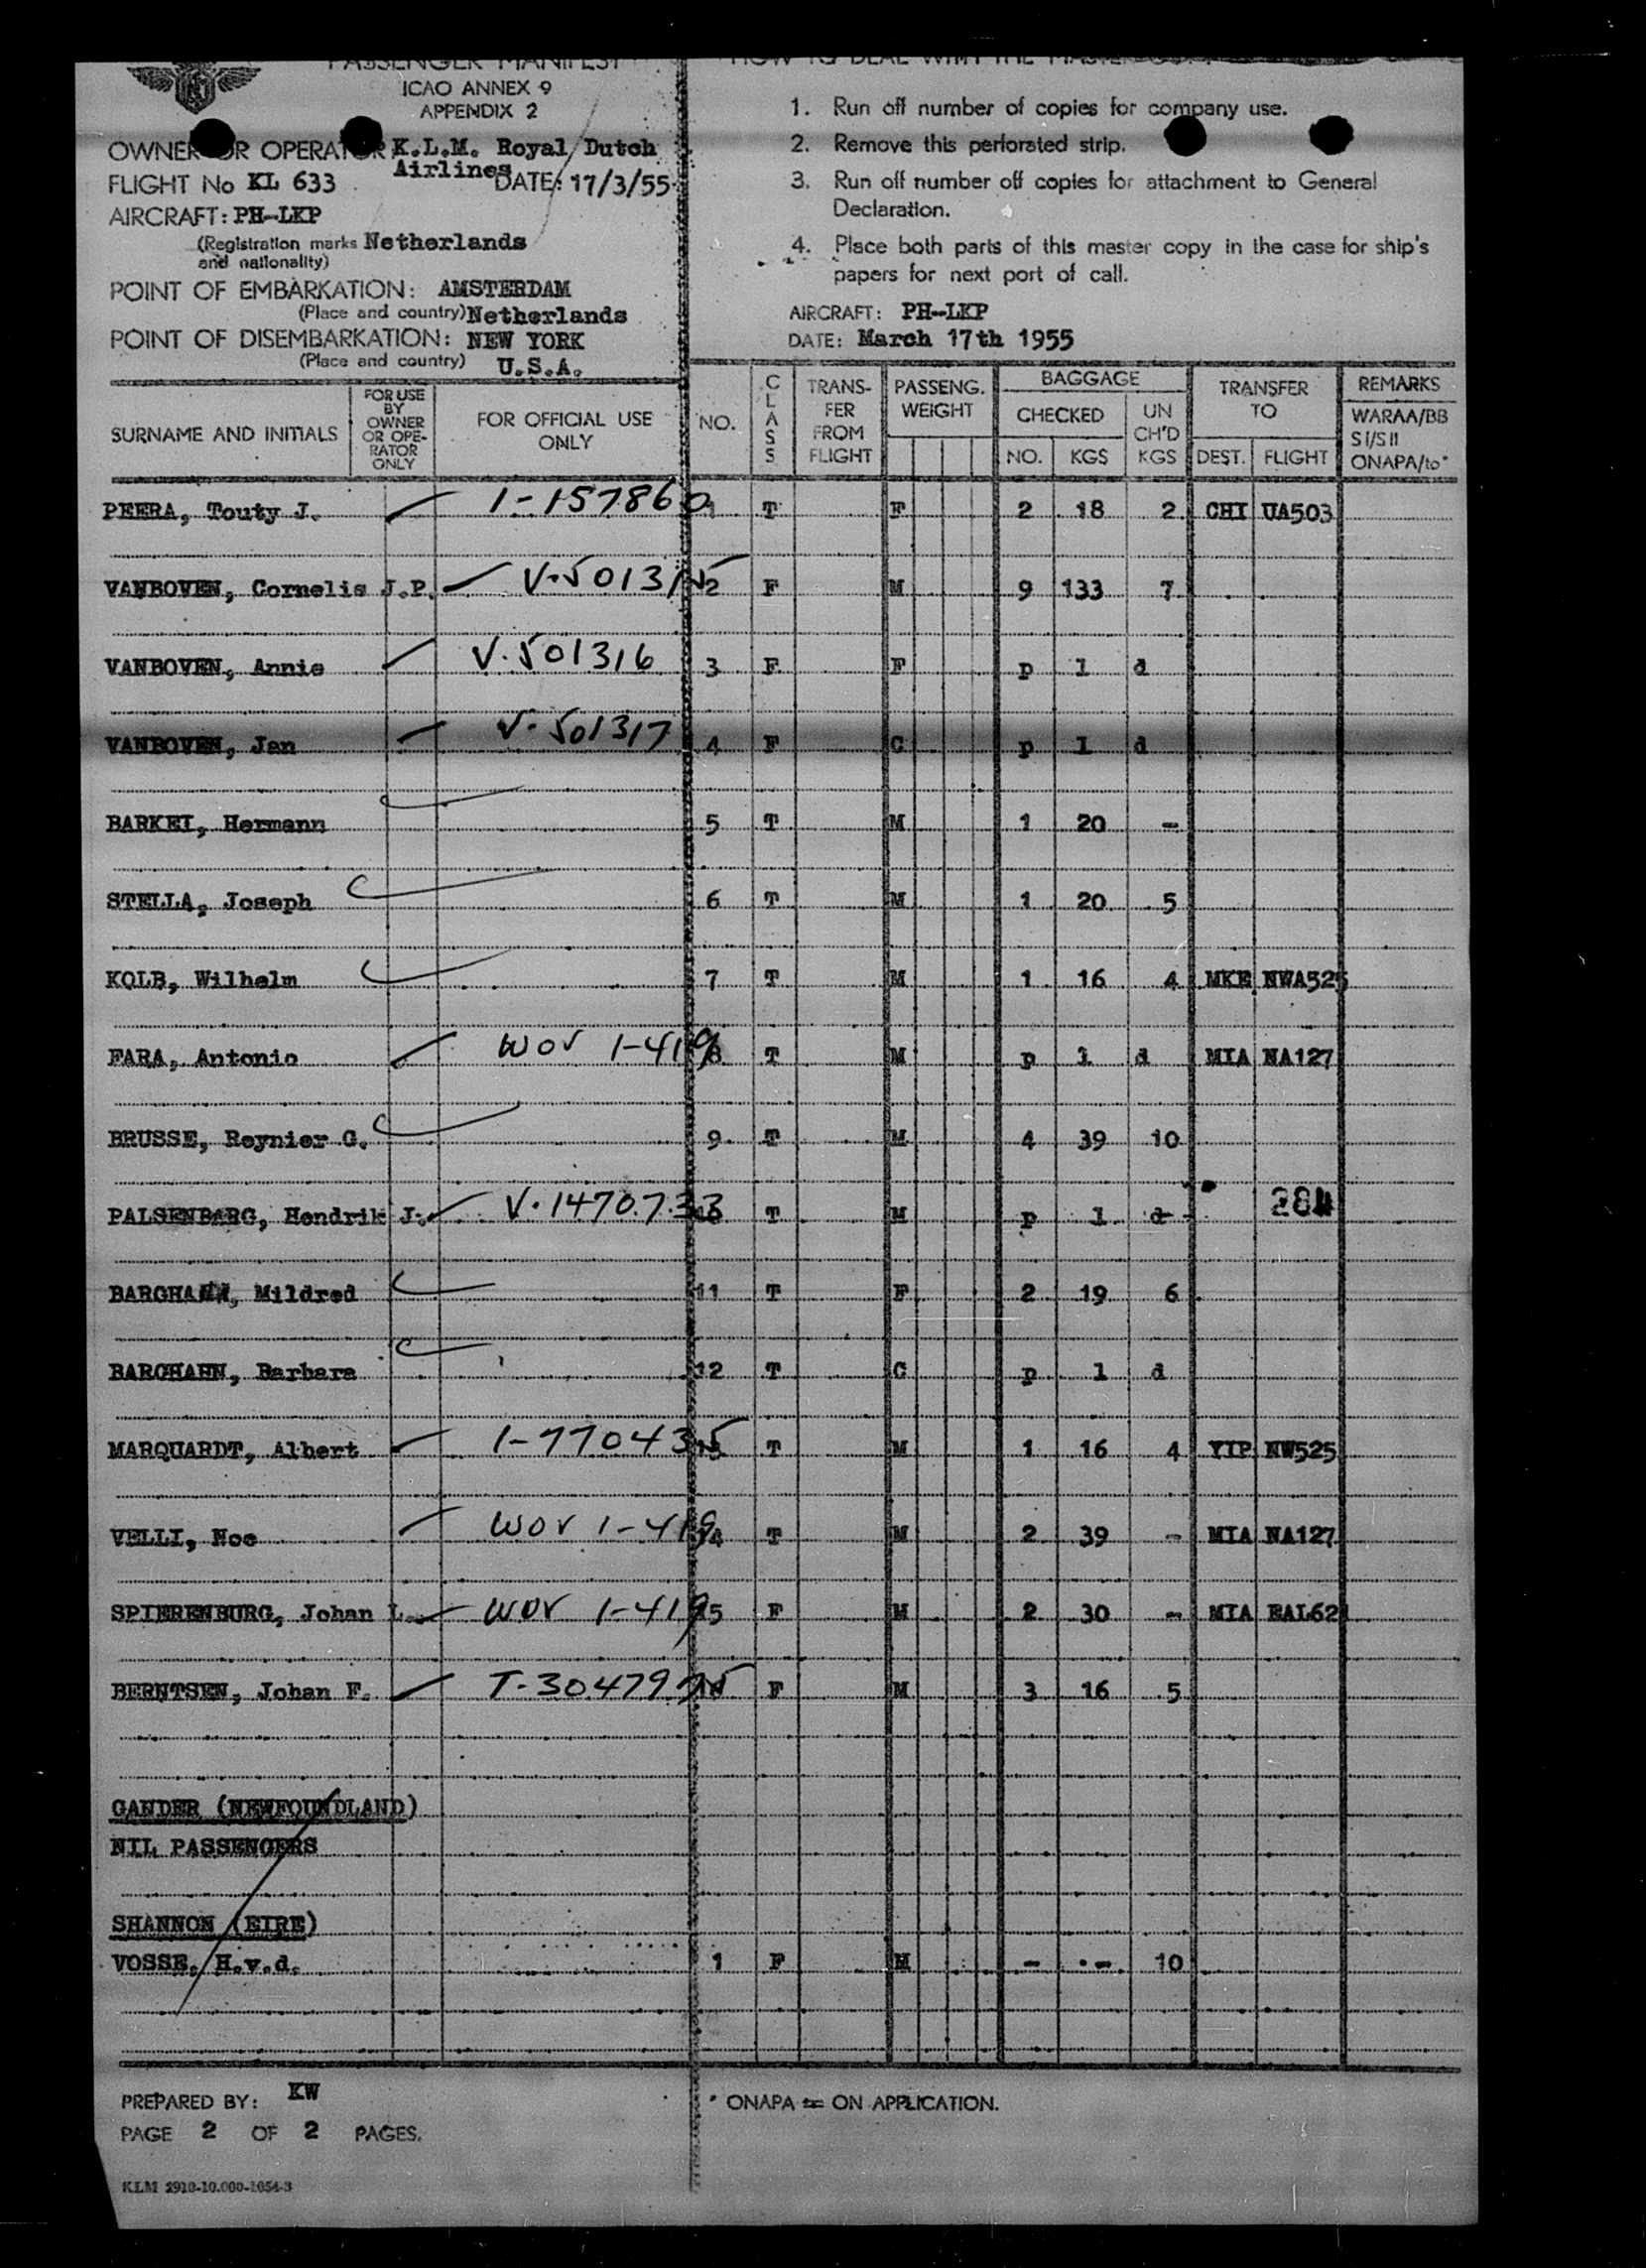 PASSENGER MANIFEST
ICAO ANNEX 9
APPENDIX 2
OWNER OR OPERATOR K.L.M. Royal Dutch
Airlines
FLIGHT No KL 633 DATE: 17/3/55
AIRCRAFT: PH-LKP
(Registration marks Netherlands
and nationality)
POINT OF EMBARKATION: AMSTERDAM
(Place and country) Netherlands
POINT OF DISEMBARKATION: NEW YORK
(Place and country) U.S.A.
HOW TO DEAL WITH THE MASTER
1. Run off number of copies for company use.
2. Remove this perforated strip.
3. Run off number off copies for attachment to General
Declaration.
4. Place both parts of this master copy in the case for ship's
papers for next port of call.
AIRCRAFT: PH-LKP
DATE: March 17th 1955
SURNAME AND INITIALS
FOR USE
BY
OWNER
OR OPE-
RATOR
ONLY
FOR OFFICIAL USE
ONLY
NO.
CLASS
TRANS-
FER
FROM
FLIGHT
PASSENG.
WEIGHT
BAGGAGE
CHECKED
UN
CH'D
NO. KGS KGS
TRANSFER
TO
DEST. FLIGHT
REMARKS
WARAA/BB
SI/SII
ONAPA/to*
PEERA, Touty J. 1-157860 1 T F 2 18 2 CHI UA503
VANBOVEN, Cornelis J.P. V-501315 2 F M 9 133 7
VANBOVEN, Annie V-501316 3 F F p l d
VANBOVEN, Jan V-501317 4 F C p l d
BARKEI, Hermann 5 T M 1 20 -
STELLA, Joseph 6 T M 1 20 5
KOLB, Wilhelm 7 T M 1 16 4 MKE NWA525
FARA, Antonio WOV 1-419 8 T M p l d MIA NA127
BRUSSE, Reynier G. 9 T M 4 39 10
PALSENBARG, Hendrik J. V-1470733 10 T M p l d 284
BARGHAHN, Mildred 11 T F 2 19 6
BARGHAHN, Barbara 12 T C p l d
MARQUARDT, Albert 1-770435 13 T M 1 16 4 YIP NW525
VELLI, Noe WOV 1-419 14 T M 2 39 - MIA NA127
SPIERENBURG, Johan L. WOV 1-419 15 F M 2 30 - MIA EAL621
BERNTSEN, Johan F. T-3047975 16 F M 3 16 5
GANDER (NEWFOUNDLAND)
NIL PASSENGERS
SHANNON (EIRE)
VOSSE, H.v.d. 1 F M - - 10
PREPARED BY: KW
* ONAPA = ON APPLICATION.
PAGE 2 OF 2 PAGES.
KLM 2910-10.000-1054-3